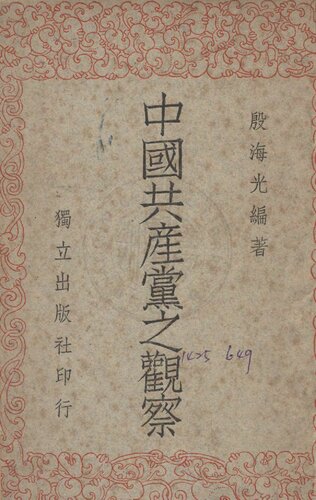 殷海光編著
中國共產黨之觀察
獨立出版社印行
1425 649